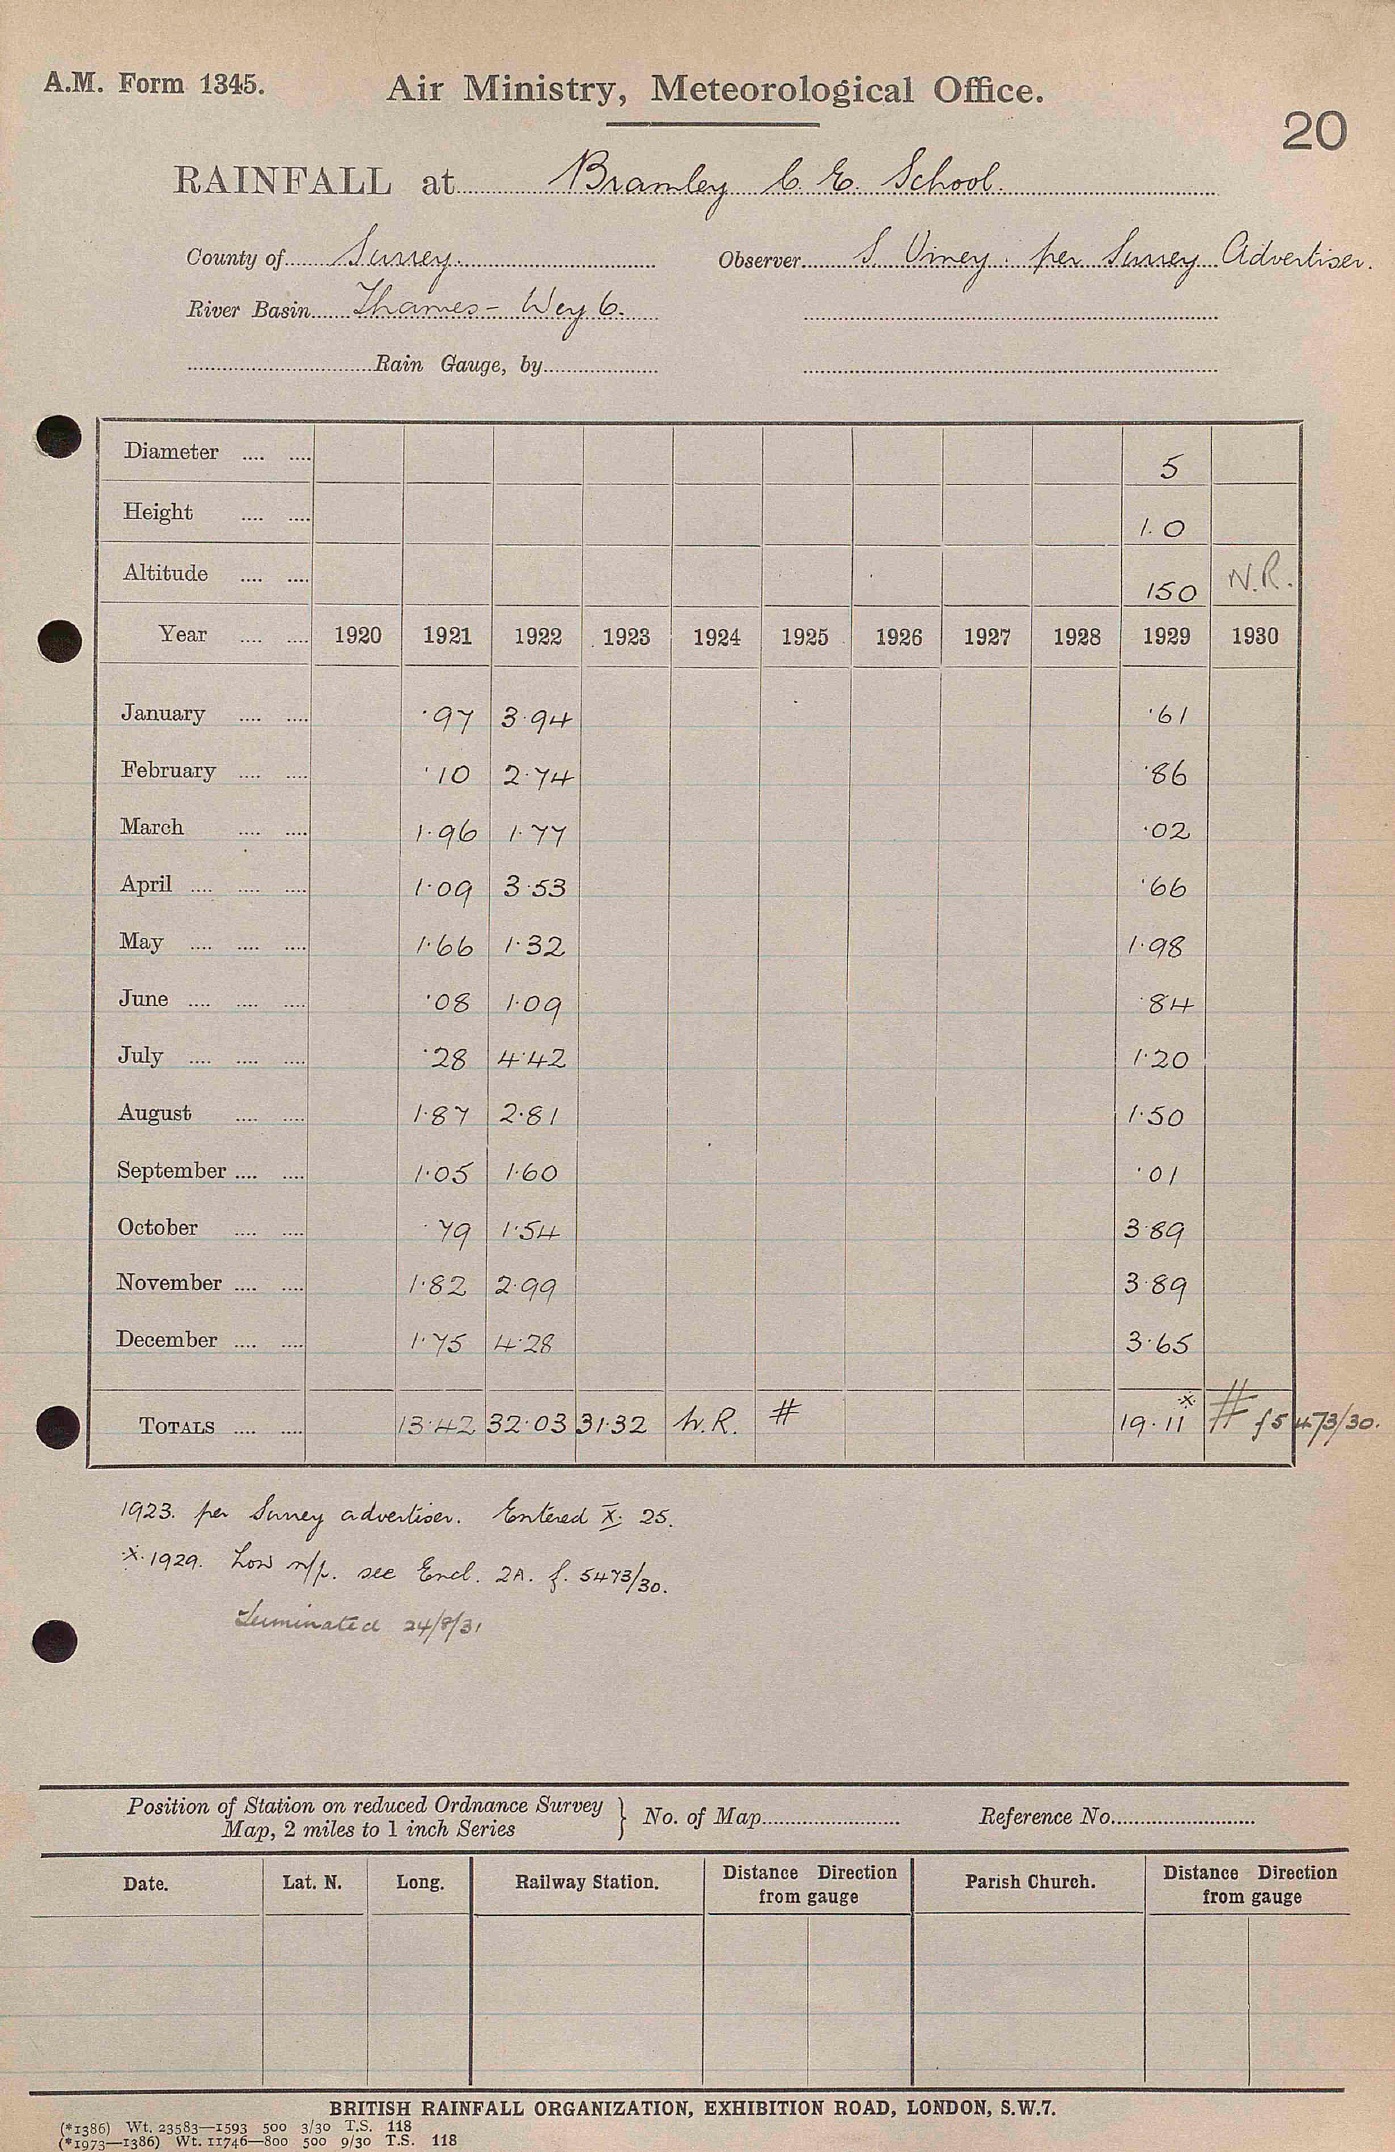 A.M. Form 1345.
Air Ministry, Meteorological Office.
20
RAINFALL at Bramley C. E. School.
County of Surrey. Observer S. Viney. per Surrey Advertiser.
River Basin Thames - Wey 6.
Rain Gauge, by
Diameter .... .... 5
Height .... .... 1.0
Altitude .... .... 150 N.R.
Year .... .... 1920 1921 1922 1923 1924 1925 1926 1927 1928 1929 1930
January .... .... ·97 3·94 ·61
February .... .... ·10 2·74 ·86
March .... .... 1·96 1·77 ·02
April .... .... .... 1·09 3·53 ·66
May .... .... .... 1·66 1·32 1·98
June .... .... .... ·08 1·09 ·84
July .... .... .... ·28 4·42 1·20
August .... .... 1·87 2·81 1·50
September .... .... 1·05 1·60 ·01
October .... .... ·79 1·54 3·89
November .... .... 1·82 2·99 3·89
December .... .... 1·75 4·28 3·65
TOTALS .... .... 13·42 32·03 31·32 N.R. # 19·11 x # f 5473/30.
1923. per Surrey advertiser. Entered X. 25.
x 1929. Low n/p. see Encl. 2A. f. 5473/30.
Terminated 24/8/31
Position of Station on reduced Ordnance Survey
Map, 2 miles to 1 inch Series } No. of Map Reference No.
Date. Lat. N. Long. Railway Station. Distance Direction from gauge Parish Church. Distance Direction from gauge
BRITISH RAINFALL ORGANIZATION, EXHIBITION ROAD, LONDON, S.W.7.
(*1386) Wt. 23583—1593 500 3/30 T.S. 118
(*1973—1386) Wt. 11746—800 500 9/30 T.S. 118